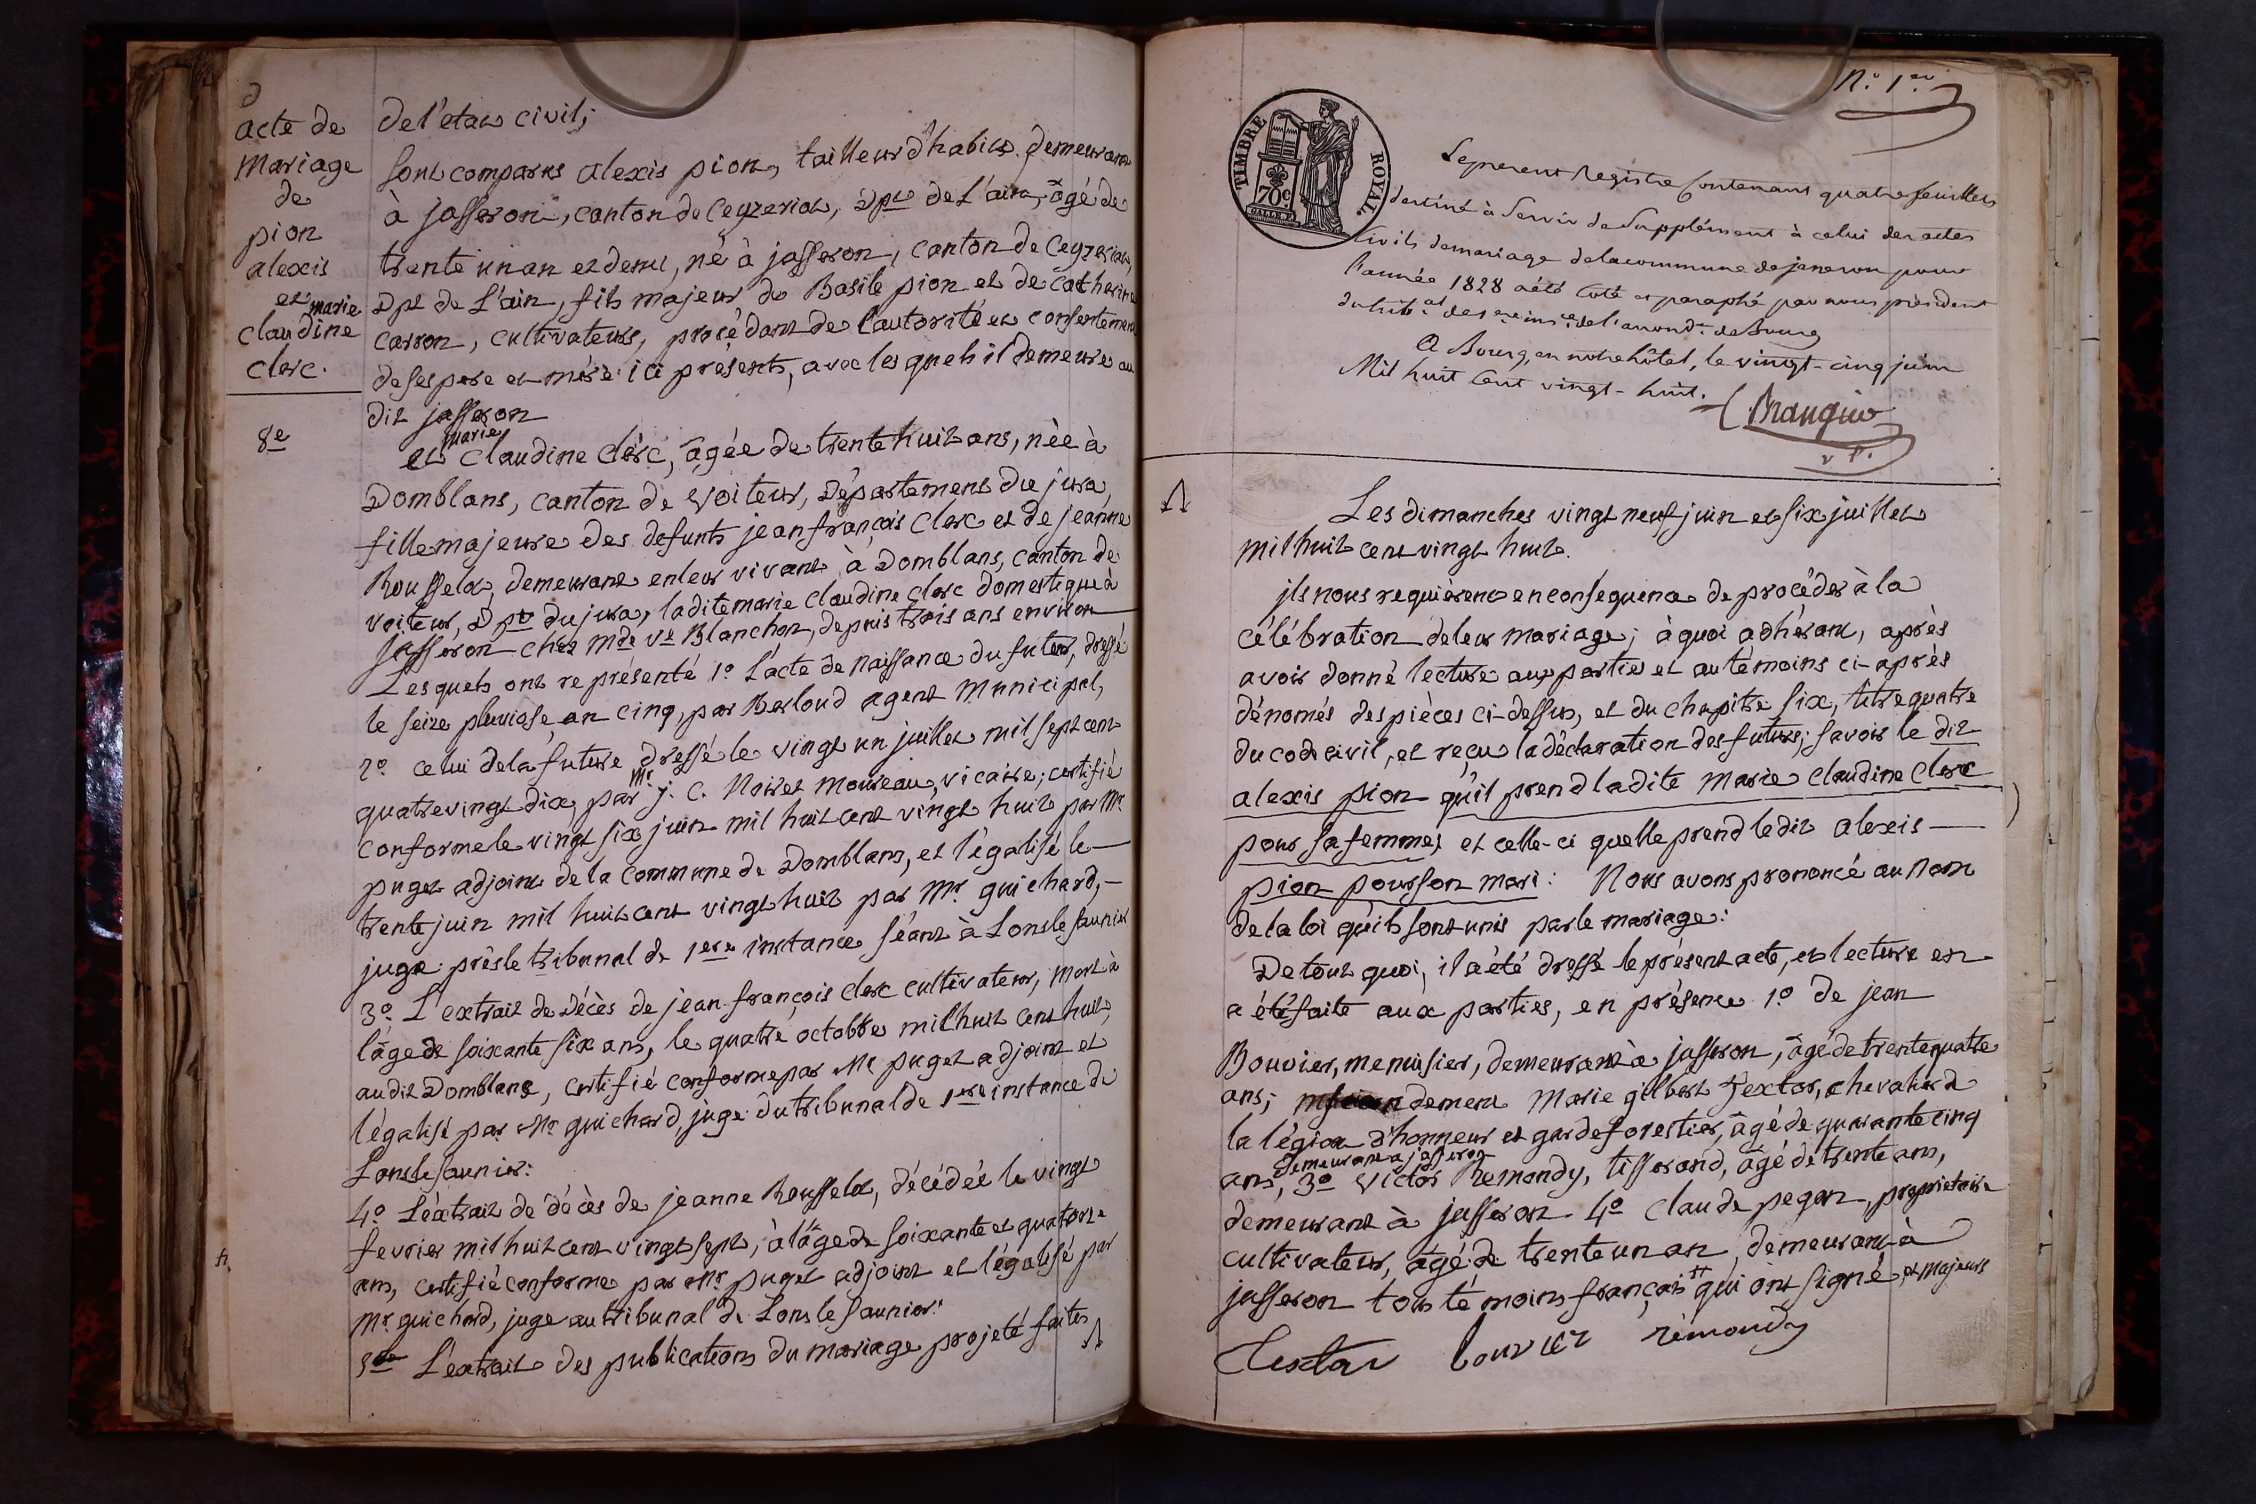 acte de
Mariage
de
pion
alexis
et marie
claudine
clerc.
8e
de l'etat civil;
sont comparus alexis pion, tailleur d'habits demeurant
à jasseron, canton de Ceyzeriat, dpt de L'ain, âgé de
trente un an et demi, né à jasseron, canton de Ceyzeriat,
dpt de L'ain, fils majeur de Basile pion et de Catherine
carron, cultivateurs, procédant de l'autorité et consentement
de ses pere et mère ici présents, avec lesquels il demeure au
dit jasseron
et marie claudine clerc, âgée de trente huit ans, née à
Domblans, canton de Voiteur, Département du jura,
fille majeure des defunts jean françois clerc et de jeanne
Rousselot, demeurant en leur vivant à Domblans, canton de
voiteur, dpt du jura, ladite marie claudine clerc domestique à
jasseron chez Mde Ve Blanchon, depuis trois ans environ
Lesquels ont représenté 1o L'acte de naissance du futeur, dressé
le seize pluviose an cinq, par Berloud agent municipal,
2o celui de la future dressé le vingt un juillet mil sept cent
quatre vingt dix, par Mr j. C. Noiret Moureau, vicaire; certifié
conforme le vingt six juin mil huit cent vingt huit par Mr
puget adjoint de la commune de Domblans, et l'égalisé le
trente juin mil huit cent vingt huit par Mr. guichard,
juge près le tribunal de 1ere instance séant à Lons le saunier
3o. L'extrait de Décès de jean françois clerc cultivateur, mort à
l'âge de soixante six ans, le quatre octobre mil huit cent huit,
au dit Domblans, certifié conforme par Mr puget adjoint et
l'égalisé par Mr guichard, juge du tribunal de 1ere instance de
Lons le saunier:
4o L'éxtrait de décès de jeanne Rousselot, décédée le vingt
fevrier mil huit cent vingt sept, à l'âge de soixante et quatorze
ans, certifié conforme par Mr puget adjoint et l'égalisé par
Mr guichard, juge au tribunal de Lons le saunier:
5o L'extrait des publications du mariage projeté faites
N.o 1er
TIMBRE ROYAL.
70c.
Le present Registre contenant quatre feuillets
destiné à servir de supplément à celui des actes
Civils de mariage de la commune de janseron pour
l'année 1828 a été coté et paraphé par nous président
du trib.al de 1ere ins.ce de l'arrond.t de Bourg
A Bourg, en notre hôtel, le vingt-cinq juin
Mil huit cent vingt-huit.
Les dimanches vingt neuf juin et six juillet
mil huit cent vingt huit.
ils nous requièrent en conséquence de procéder à la
célébration de leur mariage; à quoi adhérant, après
avoir donné lecture aux parties et au témoins ci-après
dénomés des pièces ci-dessus, et du chapitre six, titre quatre
du code civil, et reçu la déclaration des futurs; savoir le dit
alexis pion qu'il prend ladite Marie claudine clerc
pour sa femme; et celle-ci quelle prend le dit alexis
pion pour son mari: Nous avons prononcé au nom
de la loi qu'ils sont unis par le mariage:
De tout quoi, il a été dressé le présent acte, et lecture en
a été faite aux parties, en présence 1o de jean
Bouvier, menuisier, demeurant à jasseron, âgé de trente quatre
ans; Marie gilbert Textor, chevalier de
la légion d'honneur et garde forestier, âgé de quarante cinq
ans, demeurant a jasseron 3o Victor Remondy, tisserand, âgé de trente ans,
demeurant à jasseron 4o Claude pegon, proprietaire
cultivateur, âgé de trente un an, demeurant à
jasseron tous témoins français et majeurs qui ont signé
Textor bouvier rémondy